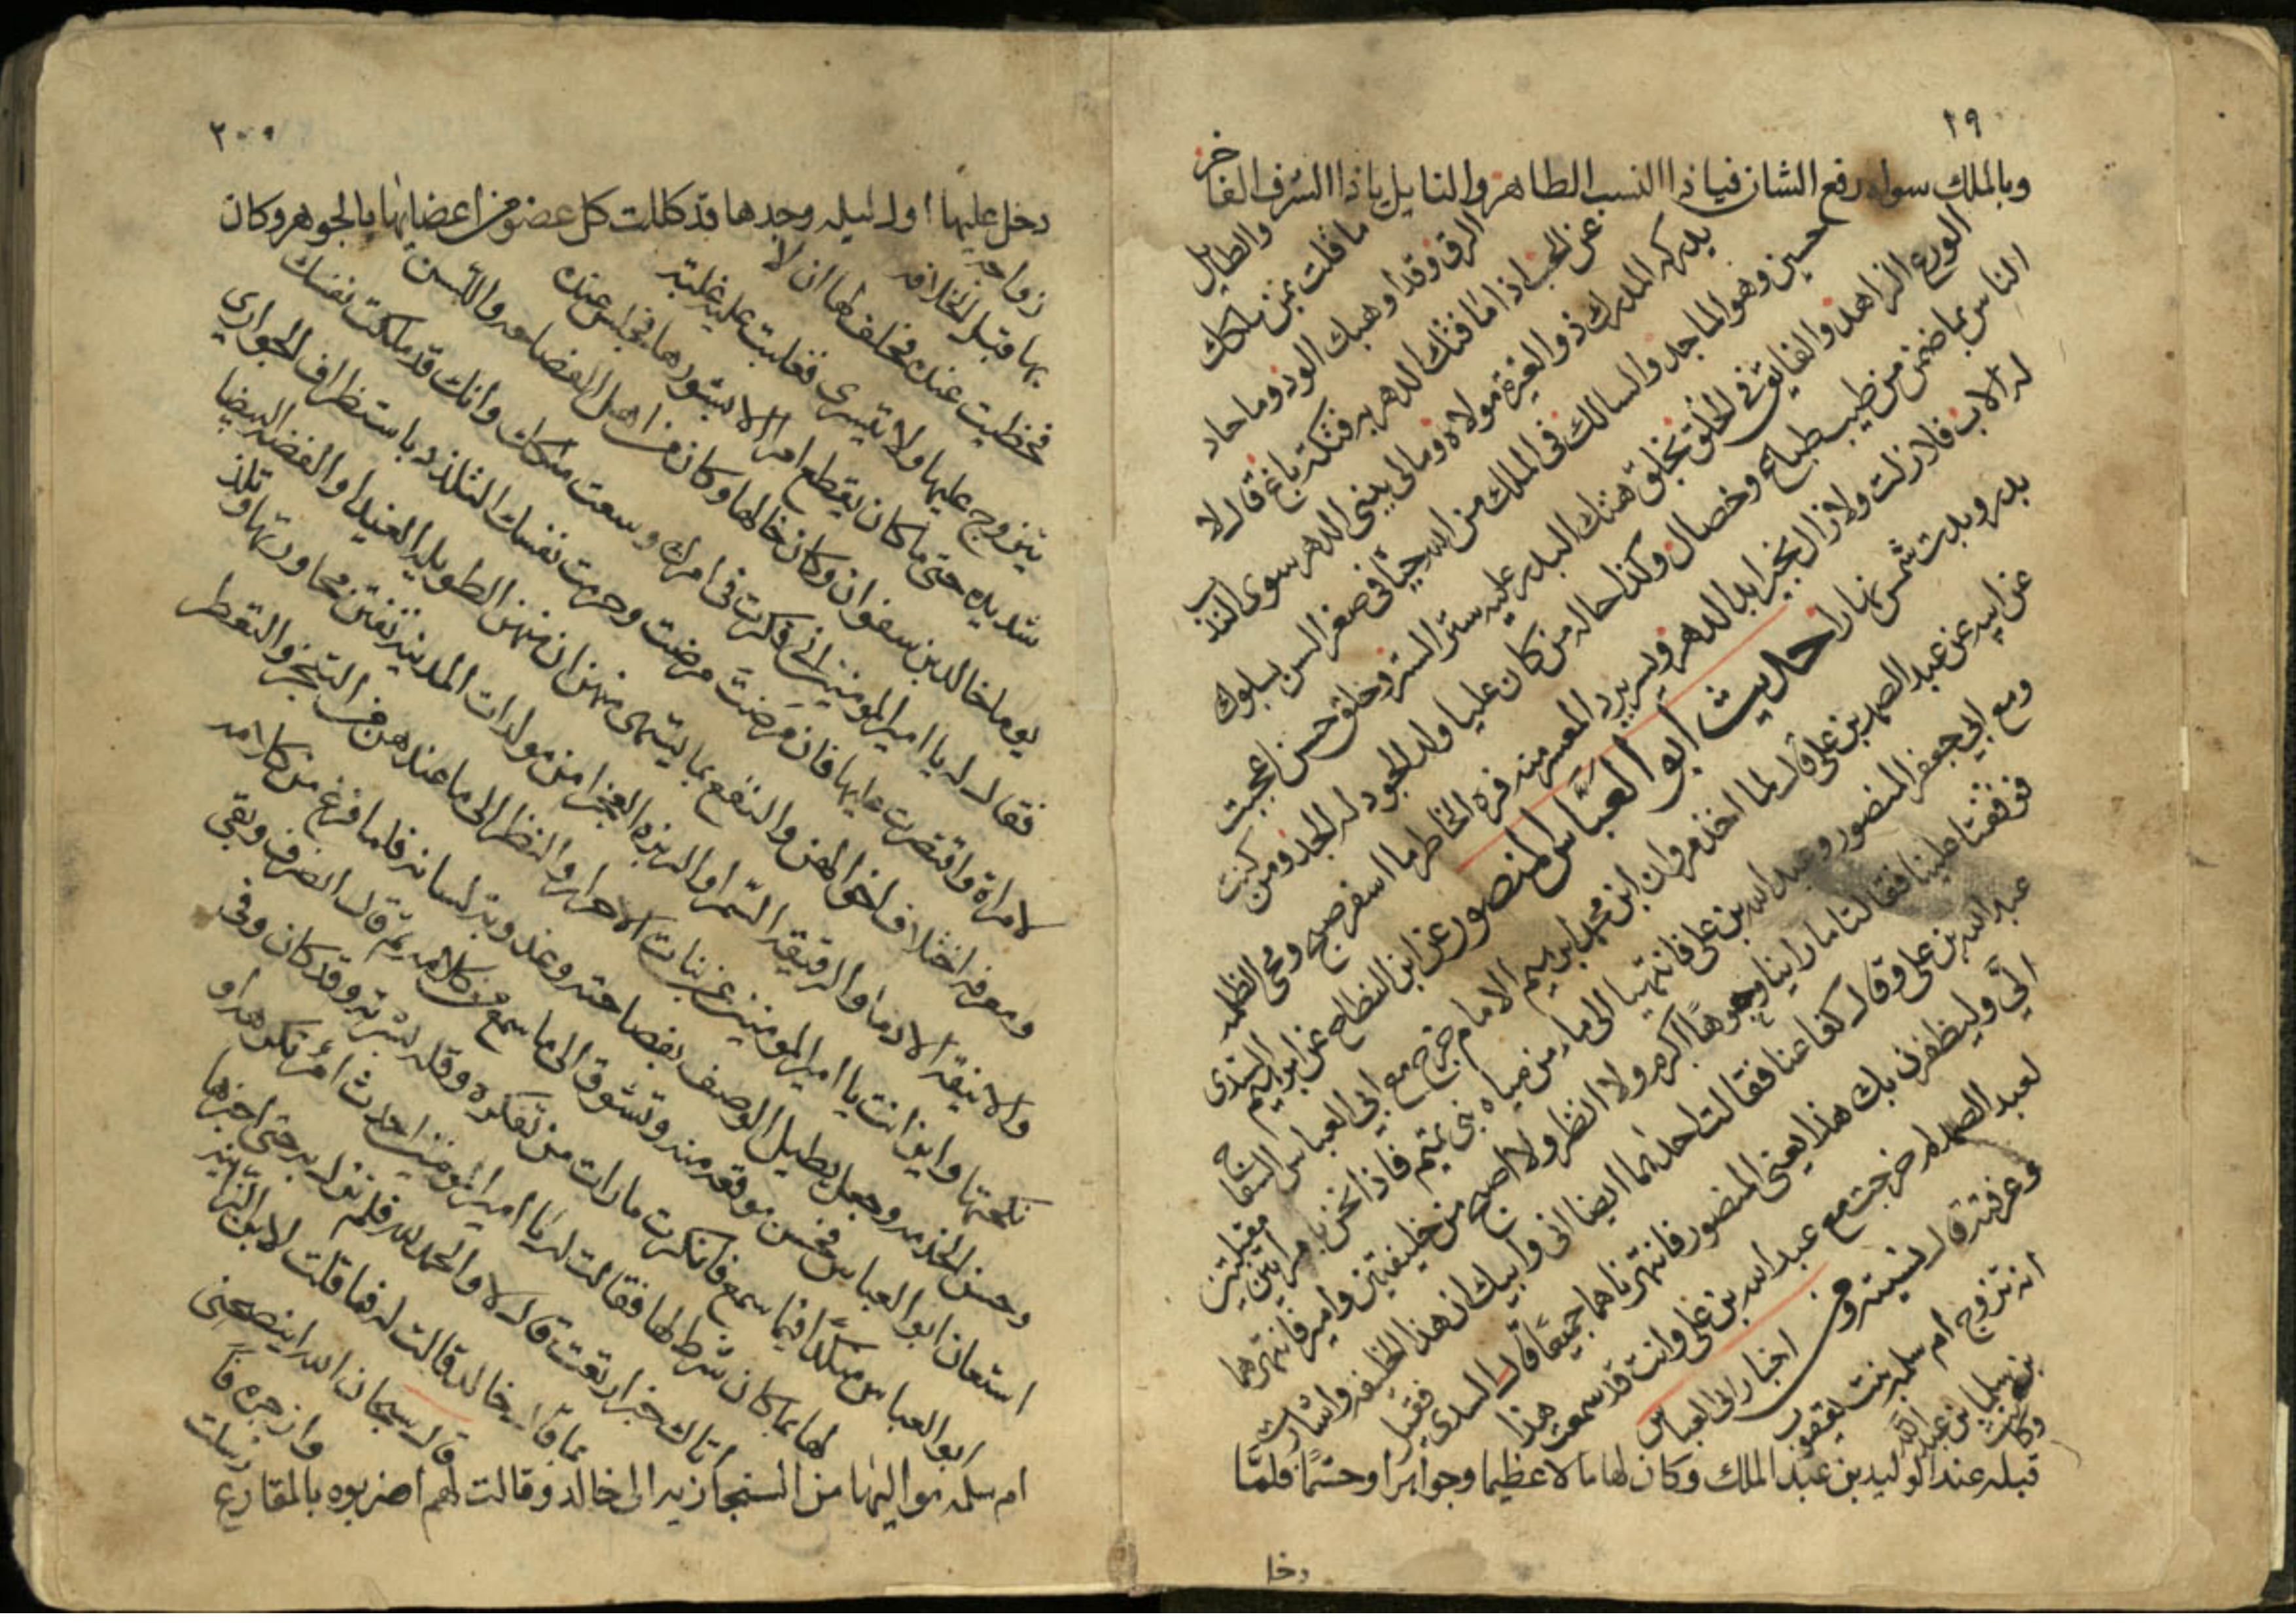 ١٩
وبالملك سواه رفع الشان فيا ذا النسب الطاهر والنايل يا ذا الشرف الفاخر
والطايل
ما قلت بمن يملكك
الرق وقد اوهبك الود وما حاد
عن الحب اذا ما فتك الدهر به فتكة باغ قال لا
يدركه المدرك ذو العزة مولاه ومالى الدهر سوى
حسين وهو الماجد والسالك فى الملك من الله حيا فى صغر السن بسلوك
الورع الزاهد والفايق فى الخلق بخلق هتك البدر عليه ستر الستر وخلق حسن اعجبت
الناس بما ضمن من طيب طباع وخصال وكذا حاله من كان عليا ولد الجود له الجد ومن كنت
له الاب فلا زلت ولا زال بخير ابد الدهر ويسر يرد المعسر منه الخاطر ما اسفر صبح ومحى الظلمه
بدر وبدت شمس نهارا حديث ابو العباس المنصور عن ابن النطاح عن ابرهيم السندى
عن ابيه عن عبد الصمد بن على قال لما اخذ مروان ابن محمد ابرهيم الامام خرج مع ابى العباس السفاح
ومع ابى جعفر المنصور وعبد الله بن على فانتهينا الى ماء من مياه بنى تميم فاذا نحن بامراتين مقبلتين
فوقفتا علينا فقالتا ما راينا وجوها اكرم ولا انظر ولا اصبح من خليفتين وامير فانتهرهما
عبد الله بن على وقال كفا عنا فقالت احداهما ايضا انى وابيك ان هذا الخليفه واشارت
الىّ وليظفرن بك هذا يعنى المنصور فانتهرناهما جميعا قال السدى فقيل
لعبد الصمد لم خرجت مع عبد الله بن على وانت قد سمعت هذا
وعرفته قال نسيته ومن اخبار ابى العباس
انه تزوج ام سلمه بنت يعقوب
بن سلمه بن عبد الله
وكانت
قبله عند الوليد بن عبد الملك وكان لها مالا عظيما وجواهرا وحشما فلما
دخل
٢٠
دخل عليها اول ليله وجدها قد كللت كل عضو من اعضايها بالجوهر وكان
زواجه
بها قبل الخلافه
فحظيت عنده فحلف لها ان لا
يتزوج عليها ولا يتسرى فغلبت عليه غلبه
شديده حتى ما كان يقطع امرا الا بشورها فجلس عنده
يوما خالد بن سفوان وكان خالها وكان من اهل الفصاحه واللسن
فقال له يا امير المومنين انى فكرت فى امرك وسعت ملكك وانك قد ملكت نفسك
لامراة واقتصرت عليها فان مرضت مرضت وحرمت نفسك التلذذ باستظراف الجوارى
ومعرفه اختلاف اخوالهن والتنفع بما يشتهى منهن ان منهن الطويله الغيدا والفضه البيضا
والانيقه الادما والرقيقه السمرا والبربره العجزا من مولدات المدينه تفتن بمحاورتها وتلذ
نكحتها واين انت يا امير المومنين عن بنات الاحرار والنظر الى ما عندهن من التبختر والتقطر
وحسن الخدمه وجعل يطيل الوصف بفصاحته وعذوبة لسانه فلما فرغ من كلامه
استعان ابو العباس فحسن موقعه منه وتشوق الى ما سمع من كلامه ثم قال انصرف وبقى
ابو العباس مفكرا فيما سمع فانكرت ما رات من تفكره وقله نشربه وقد كان وفى
لها بما كان شرط لها فقالت له يا امير المومنين احدث امر تكرهه او
اتاك خبر ارتعت قال لا والحمد لله فلم تزل به حتى اخبرها
بما قال خالد قالت له فما قلت لابن الزانيه
قال سبحان الله اينصحنى
وازجره فا
رسلت
ام سلمه مواليها من الى خالد وقالت لهم اضربوه بالمقارع